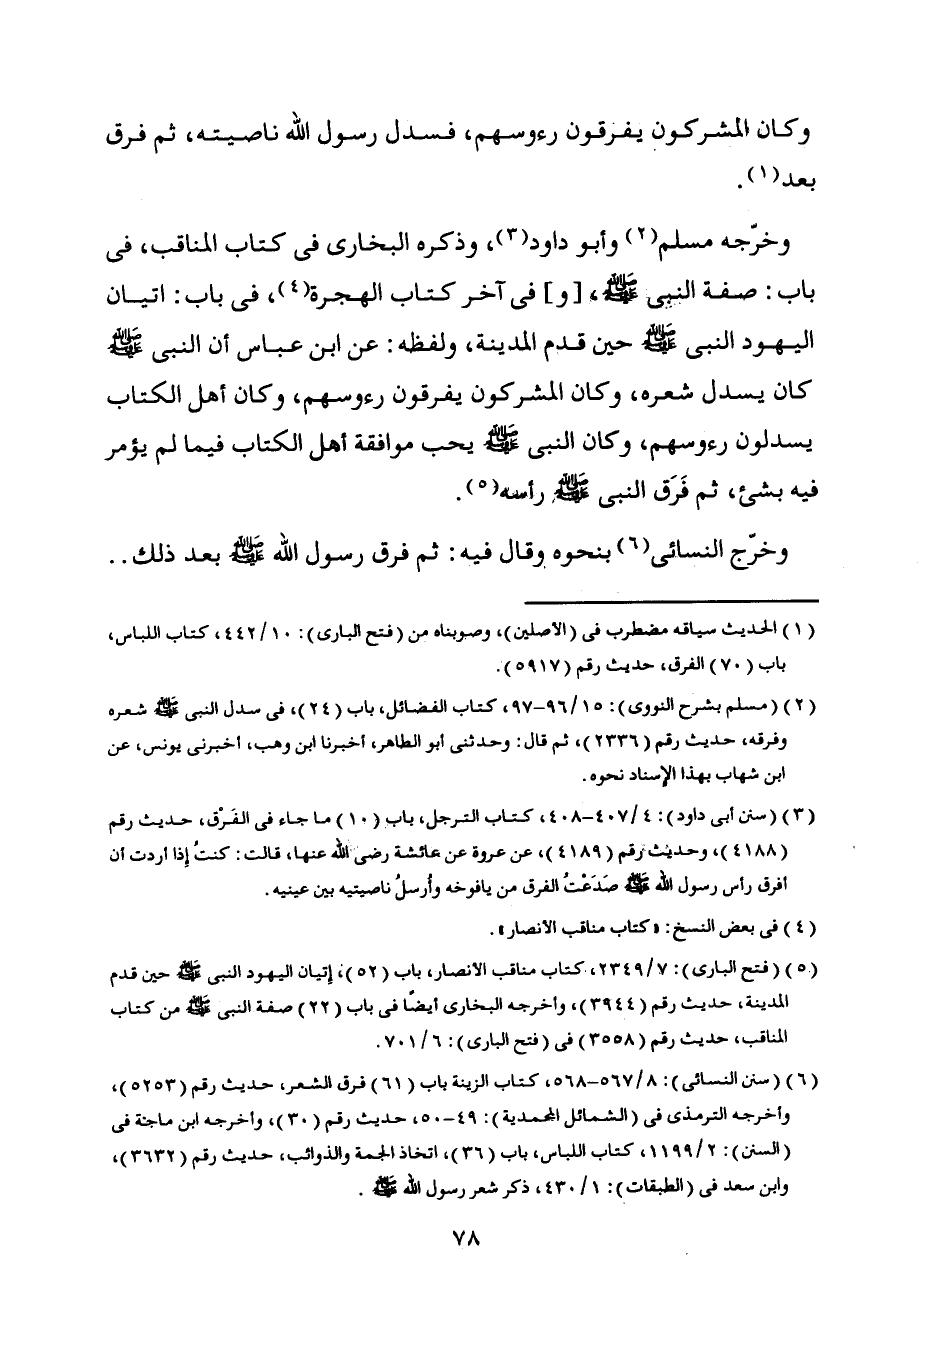 وكان المشركون يفرقون رءوسهم، فسدل رسول الله ناصيته، ثم فرق
بعد(١).
وخرّجه مسلم(٢) وأبو داود(٣)، وذكره البخارى فى كتاب المناقب، فى
باب: صفة النبى ﷺ، [و] فى آخر كتاب الهجرة(٤)، فى باب: اتيان
اليهود النبى ﷺ حين قدم المدينة، ولفظه: عن ابن عباس أن النبى ﷺ
كان يسدل شعره، وكان المشركون يفرقون رءوسهم، وكان أهل الكتاب
يسدلون رءوسهم، وكان النبى ﷺ يحب موافقة أهل الكتاب فيما لم يؤمر
فيه بشئ، ثم فَرَق النبى ﷺ رأسه(٥).
وخرّج النسائى(٦) بنحوه وقال فيه: ثم فرق رسول الله ﷺ بعد ذلك..
(١) الحديث سياقه مضطرب فى (الأصلين)، وصوبناه من (فتح البارى): ١٠/ ٤٤٢، كتاب اللباس،
باب (٧٠) الفرق، حديث رقم (٥٩١٧).
(٢) (مسلم بشرح النووى): ١٥/ ٩٦-٩٧، كتاب الفضائل، باب (٢٤)، فى سدل النبى ﷺ شعره
وفرقه، حديث رقم (٢٣٣٦)، ثم قال: وحدثنى أبو الطاهر، أخبرنا ابن وهب، أخبرنى يونس، عن
ابن شهاب بهذا الإسناد نحوه.
(٣) (سنن أبى داود): ٤/ ٤٠٧-٤٠٨، كتاب الترجل، باب (١٠) ما جاء فى الفَرْق، حديث رقم
(٤١٨٨)، وحديث رقم (٤١٨٩)، عن عروة عن عائشة رضى الله عنها، قالت: كنتُ إذا أردت أن
أفرق رأس رسول الله ﷺ صَدَعْتُ الفرق من يافوخه وأُرسلُ ناصيتيه بين عينيه.
(٤) فى بعض النسخ: «كتاب مناقب الأنصار».
(٥) (فتح البارى): ٧/ ٢٣٤٩، كتاب مناقب الأنصار، باب (٥٢)، إتيان اليهود النبى ﷺ حين قدم
المدينة، حديث رقم (٣٩٤٤)، وأخرجه البخارى أيضًا فى باب (٢٢) صفة النبى ﷺ من كتاب
المناقب، حديث رقم (٣٥٥٨) فى (فتح البارى): ٦/ ٧٠١.
(٦) (سنن النسائى): ٨/ ٥٦٧-٥٦٨، كتاب الزينة باب (٦١) فرق الشعر، حديث رقم (٥٢٥٣)،
وأخرجه الترمذى فى (الشمائل المحمدية): ٤٩-٥٠، حديث رقم (٣٠)، وأخرجه ابن ماجة فى
(السنن): ٢/ ١١٩٩، كتاب اللباس، باب (٣٦)، اتخاذ الجمة والذوائب، حديث رقم (٣٦٣٢)،
وابن سعد فى (الطبقات): ١/ ٤٣٠، ذكر شعر رسول الله ﷺ.
٧٨